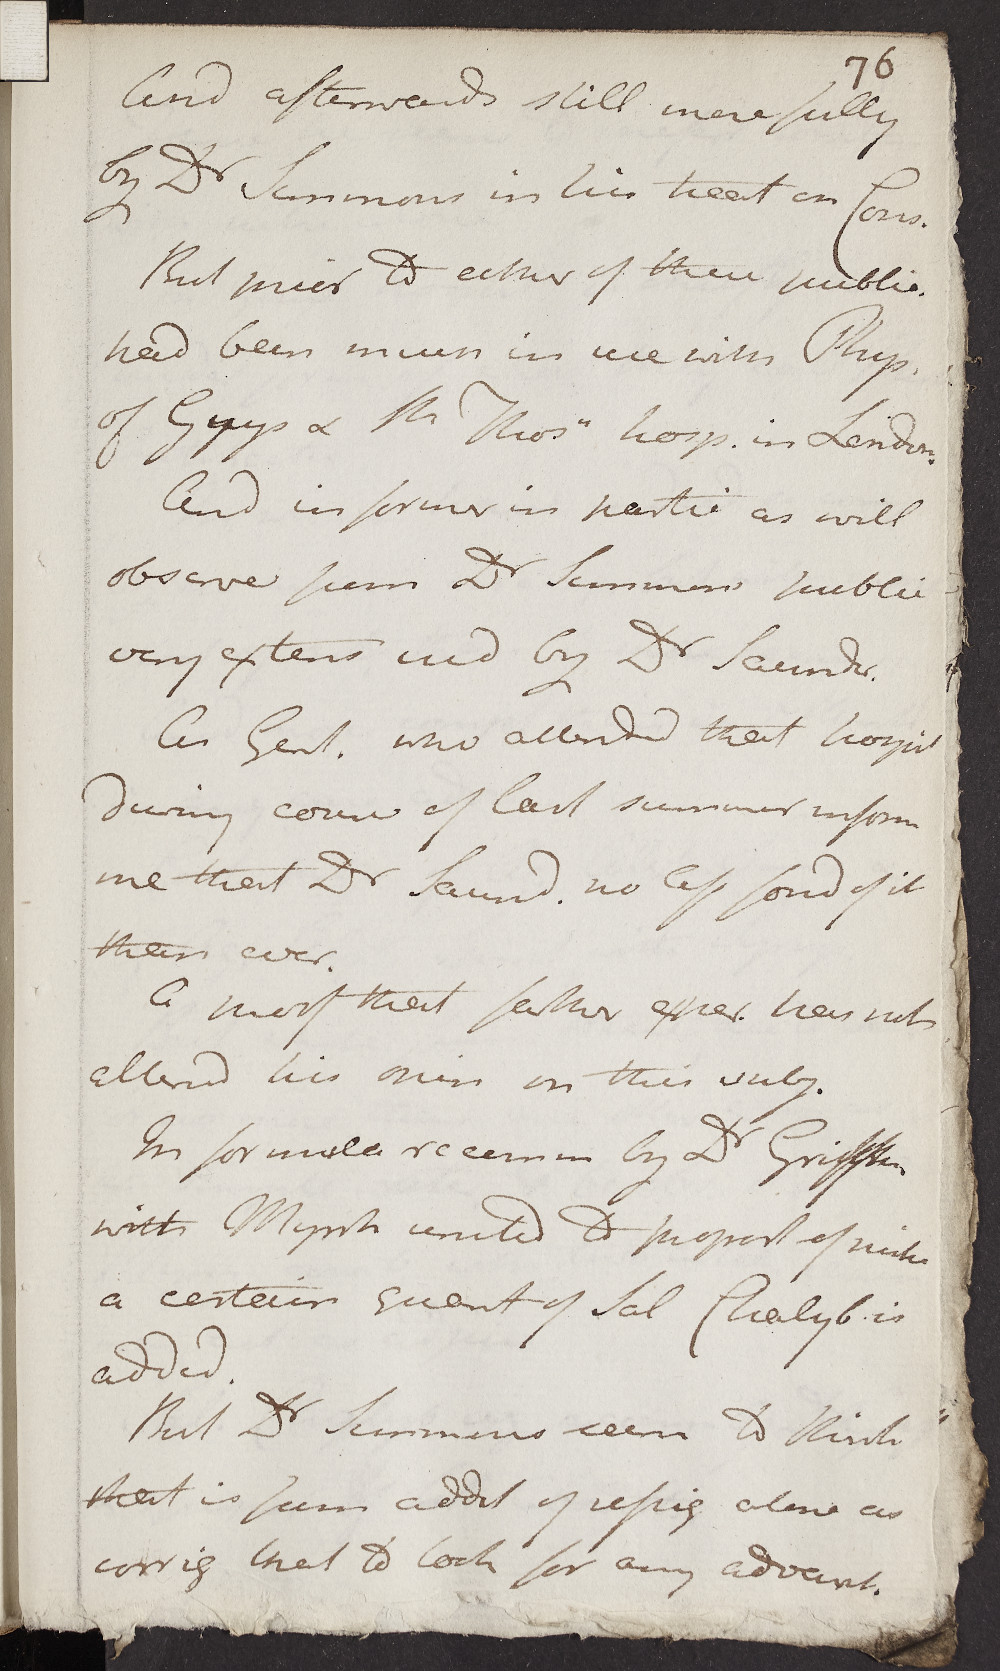 76
And afterwards still more fully
by Dr Simmons in his treat on Cons.
But prior to either of these public.
had been much in use with Phys.
of Guys & St Thos" hosp. in London.
And in former in partic as will
observe from Dr Simmons public
very extens used by Dr Saunder.
As Gent. who attended that hospit
during course of last summer inform
me that Dr Saund. no less fond of it
than ever.
A proof that farther exper. has not
altered his opin on this subj.
In formula recomm by Dr Griffith
with Myrrh united to proport of nitre
a certain quant of Sal Chalyb. is
added.
But Dr Simmons seem to think
that is from addit of refrig alone as
corrig that to look for any advant.